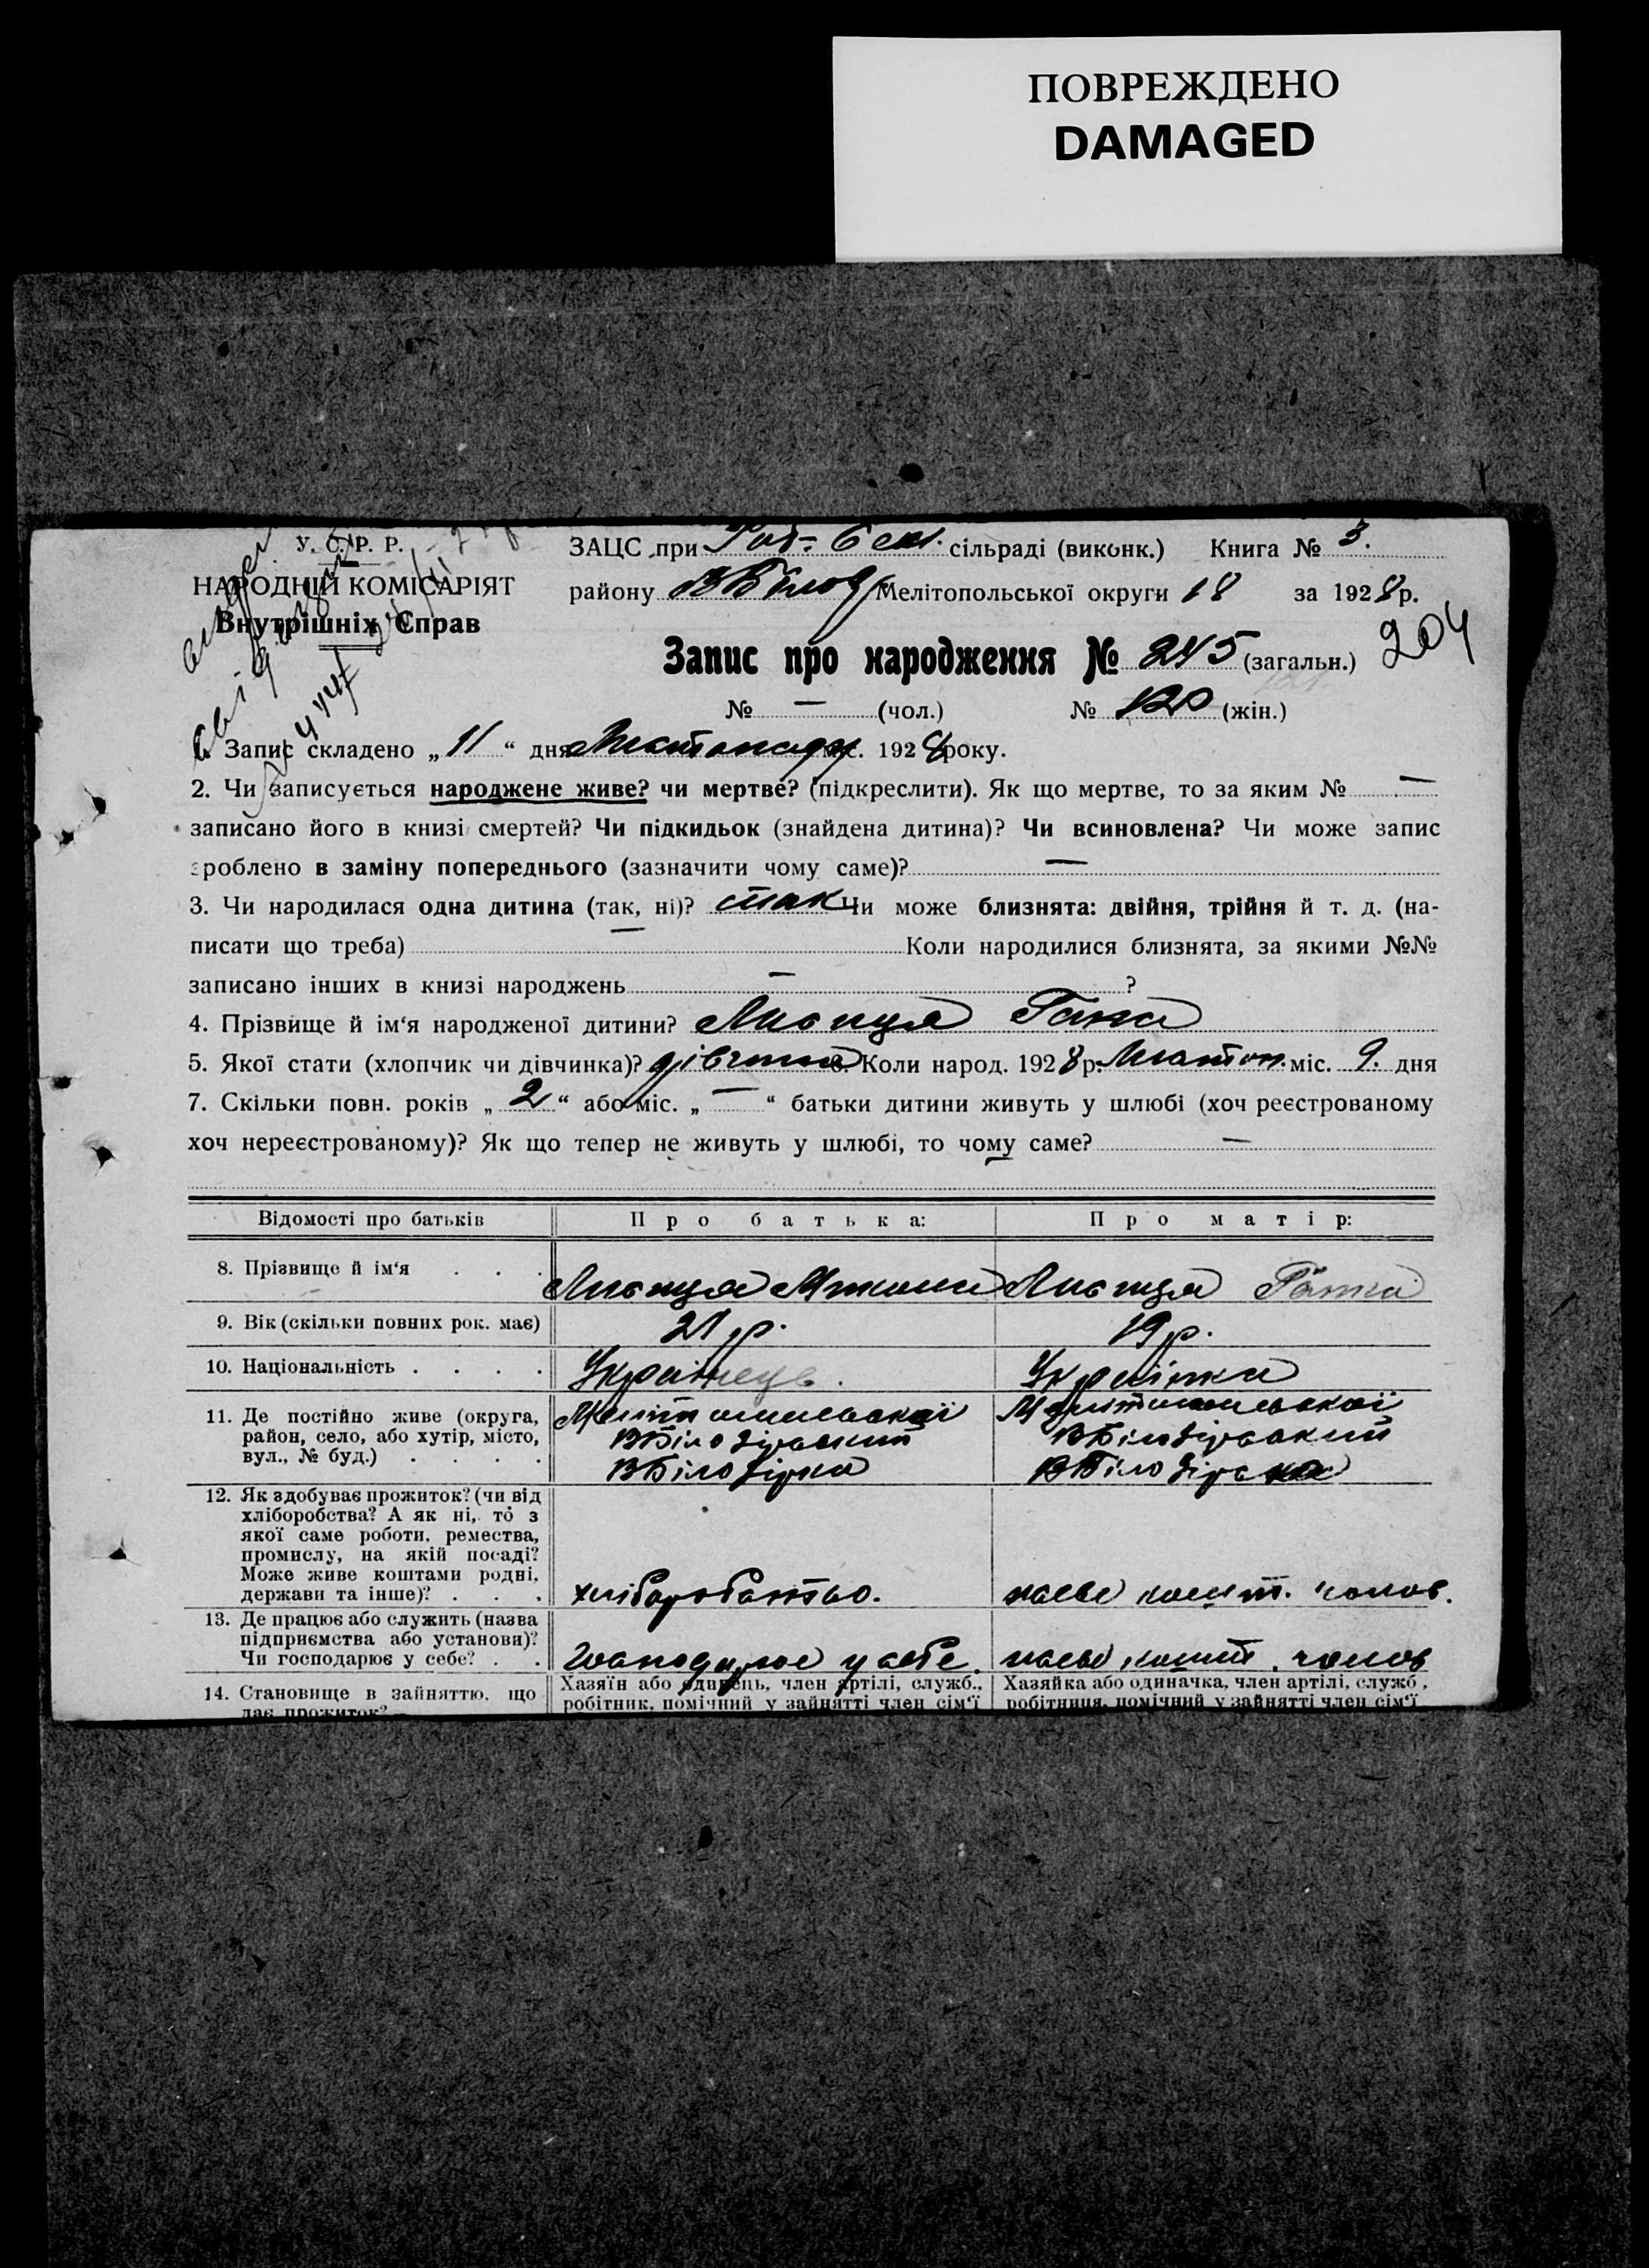 ПОВРЕЖДЕНО
DAMAGED
У. С. Р. Р.
НАРОДНІЙ КОМІСАРІЯТ
Внутрішніх Справ
ЗАЦС при сільраді (виконк.) Книга № 3.
району Мелітопольської округи 18 за 1928 р.
204
Запис про народження № 245 (загальн.)
№ — (чол.) № 120 (жін.)
1. Запис складено „ 11 “ дня Листопаду міс. 1928 року.
2. Чи записується народжене живе? чи мертве? (підкреслити). Як що мертве, то за яким № —
записано його в книзі смертей? Чи підкидьок (знайдена дитина)? Чи всиновлена? Чи може запис
зроблено в заміну попереднього (зазначити чому саме)? —
3. Чи народилася одна дитина (так, ні)? так Чи може близнята: двійня, трійня й т. д. (на-
писати що треба) Коли народилися близнята, за якими №№
записано інших в книзі народжень — ?
4. Прізвище й ім‘я народженої дитини?
5. Якої стати (хлопчик чи дівчинка)? дівчина 6. Коли народ. 1928 р. Листоп. міс. 9. дня
7. Скільки повн. років „ 2 “ або міс. „ — “ батьки дитини живуть у шлюбі (хоч реєстрованому
хоч нереєстрованому)? Як що тепер не живуть у шлюбі, то чому саме? —
Відомості про батьків Про батька: Про матір:
8. Прізвище й ім‘я . . .
9. Вік (скільки повних рок. має) 21 р. 19 р.
10. Національність . . . . Українець. Українка
11. Де постійно живе (округа, Мелітопольської Мелітопольської
район, село, або хутір, місто, ВБілозірський ВБілозірський
вул., № буд.) . . . . ВБілозірка ВБілозірка
12. Як здобуває прожиток? (чи від
хліборобства? А як ні, то з
якої саме роботи, ремества,
промислу, на якій посаді?
Може живе коштами родні,
держави та інше)? . . . хліборобство. кошт. чолов.
13. Де працює або служить (назва
підприємства або установи)?
Чи господарює у себе? . . Господарює у себе. кошт. чолов
14. Становище в зайняттю, що Хазяїн або одинець, член артілі, служб., Хазяйка або одиначка, член артілі, служб.,
дає прожиток? робітник, помічний у зайнятті член сім‘ї робітниця, помічний у зайнятті член сім‘ї